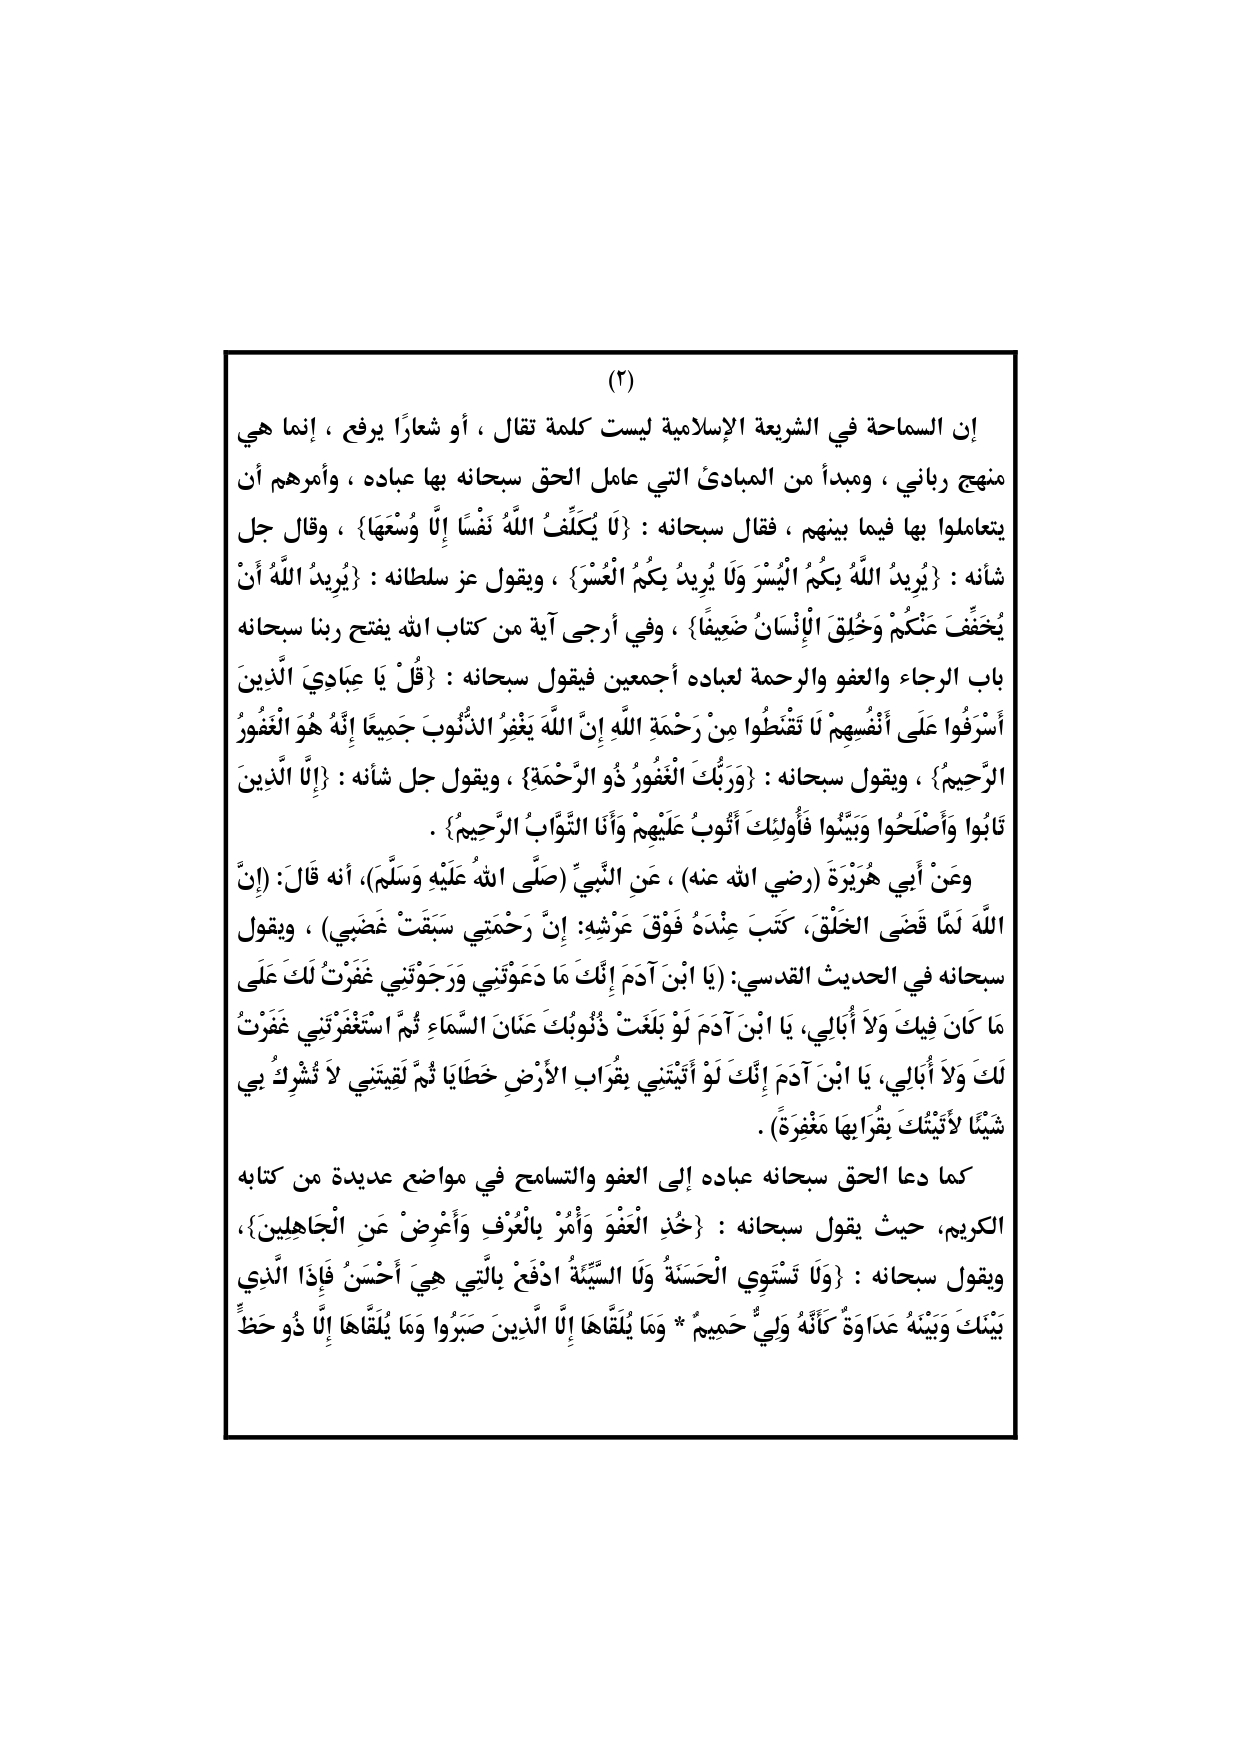 (٢)
إن السماحة في الشريعة الإسلامية ليست كلمة تقال ، أو شعارًا يرفع ، إنما هي
منهج رباني ، ومبدأ من المبادئ التي عامل الحق سبحانه بها عباده ، وأمرهم أن
يتعاملوا بها فيما بينهم ، فقال سبحانه : {لَا يُكَلِّفُ اللَّهُ نَفْسًا إِلَّا وُسْعَهَا} ، وقال جل
شأنه : {يُرِيدُ اللَّهُ بِكُمُ الْيُسْرَ وَلَا يُرِيدُ بِكُمُ الْعُسْرَ} ، ويقول عز سلطانه : {يُرِيدُ اللَّهُ أَنْ
يُخَفِّفَ عَنْكُمْ وَخُلِقَ الْإِنْسَانُ ضَعِيفًا} ، وفي أرجى آية من كتاب الله يفتح ربنا سبحانه
باب الرجاء والعفو والرحمة لعباده أجمعين فيقول سبحانه : {قُلْ يَا عِبَادِيَ الَّذِينَ
أَسْرَفُوا عَلَى أَنْفُسِهِمْ لَا تَقْنَطُوا مِنْ رَحْمَةِ اللَّهِ إِنَّ اللَّهَ يَغْفِرُ الذُّنُوبَ جَمِيعًا إِنَّهُ هُوَ الْغَفُورُ
الرَّحِيمُ} ، ويقول سبحانه : {وَرَبُّكَ الْغَفُورُ ذُو الرَّحْمَةِ} ، ويقول جل شأنه : {إِلَّا الَّذِينَ
تَابُوا وَأَصْلَحُوا وَبَيَّنُوا فَأُولَئِكَ أَتُوبُ عَلَيْهِمْ وَأَنَا التَّوَّابُ الرَّحِيمُ} .
وعَنْ أَبِي هُرَيْرَةَ (رضي الله عنه) ، عَنِ النَّبِيِّ (صَلَّى اللهُ عَلَيْهِ وَسَلَّمَ)، أنه قَالَ: (إِنَّ
اللَّهَ لَمَّا قَضَى الخَلْقَ، كَتَبَ عِنْدَهُ فَوْقَ عَرْشِهِ: إِنَّ رَحْمَتِي سَبَقَتْ غَضَبِي) ، ويقول
سبحانه في الحديث القدسي: (يَا ابْنَ آدَمَ إِنَّكَ مَا دَعَوْتَنِي وَرَجَوْتَنِي غَفَرْتُ لَكَ عَلَى
مَا كَانَ فِيكَ وَلاَ أُبَالِي، يَا ابْنَ آدَمَ لَوْ بَلَغَتْ ذُنُوبُكَ عَنَانَ السَّمَاءِ ثُمَّ اسْتَغْفَرْتَنِي غَفَرْتُ
لَكَ وَلاَ أُبَالِي، يَا ابْنَ آدَمَ إِنَّكَ لَوْ أَتَيْتَنِي بِقُرَابِ الأَرْضِ خَطَايَا ثُمَّ لَقِيتَنِي لاَ تُشْرِكُ بِي
شَيْئًا لأَتَيْتُكَ بِقُرَابِهَا مَغْفِرَةً) .
كما دعا الحق سبحانه عباده إلى العفو والتسامح في مواضع عديدة من كتابه
الكريم، حيث يقول سبحانه : {خُذِ الْعَفْوَ وَأْمُرْ بِالْعُرْفِ وَأَعْرِضْ عَنِ الْجَاهِلِينَ}،
ويقول سبحانه : {وَلَا تَسْتَوِي الْحَسَنَةُ وَلَا السَّيِّئَةُ ادْفَعْ بِالَّتِي هِيَ أَحْسَنُ فَإِذَا الَّذِي
بَيْنَكَ وَبَيْنَهُ عَدَاوَةٌ كَأَنَّهُ وَلِيٌّ حَمِيمٌ * وَمَا يُلَقَّاهَا إِلَّا الَّذِينَ صَبَرُوا وَمَا يُلَقَّاهَا إِلَّا ذُو حَظٍّ